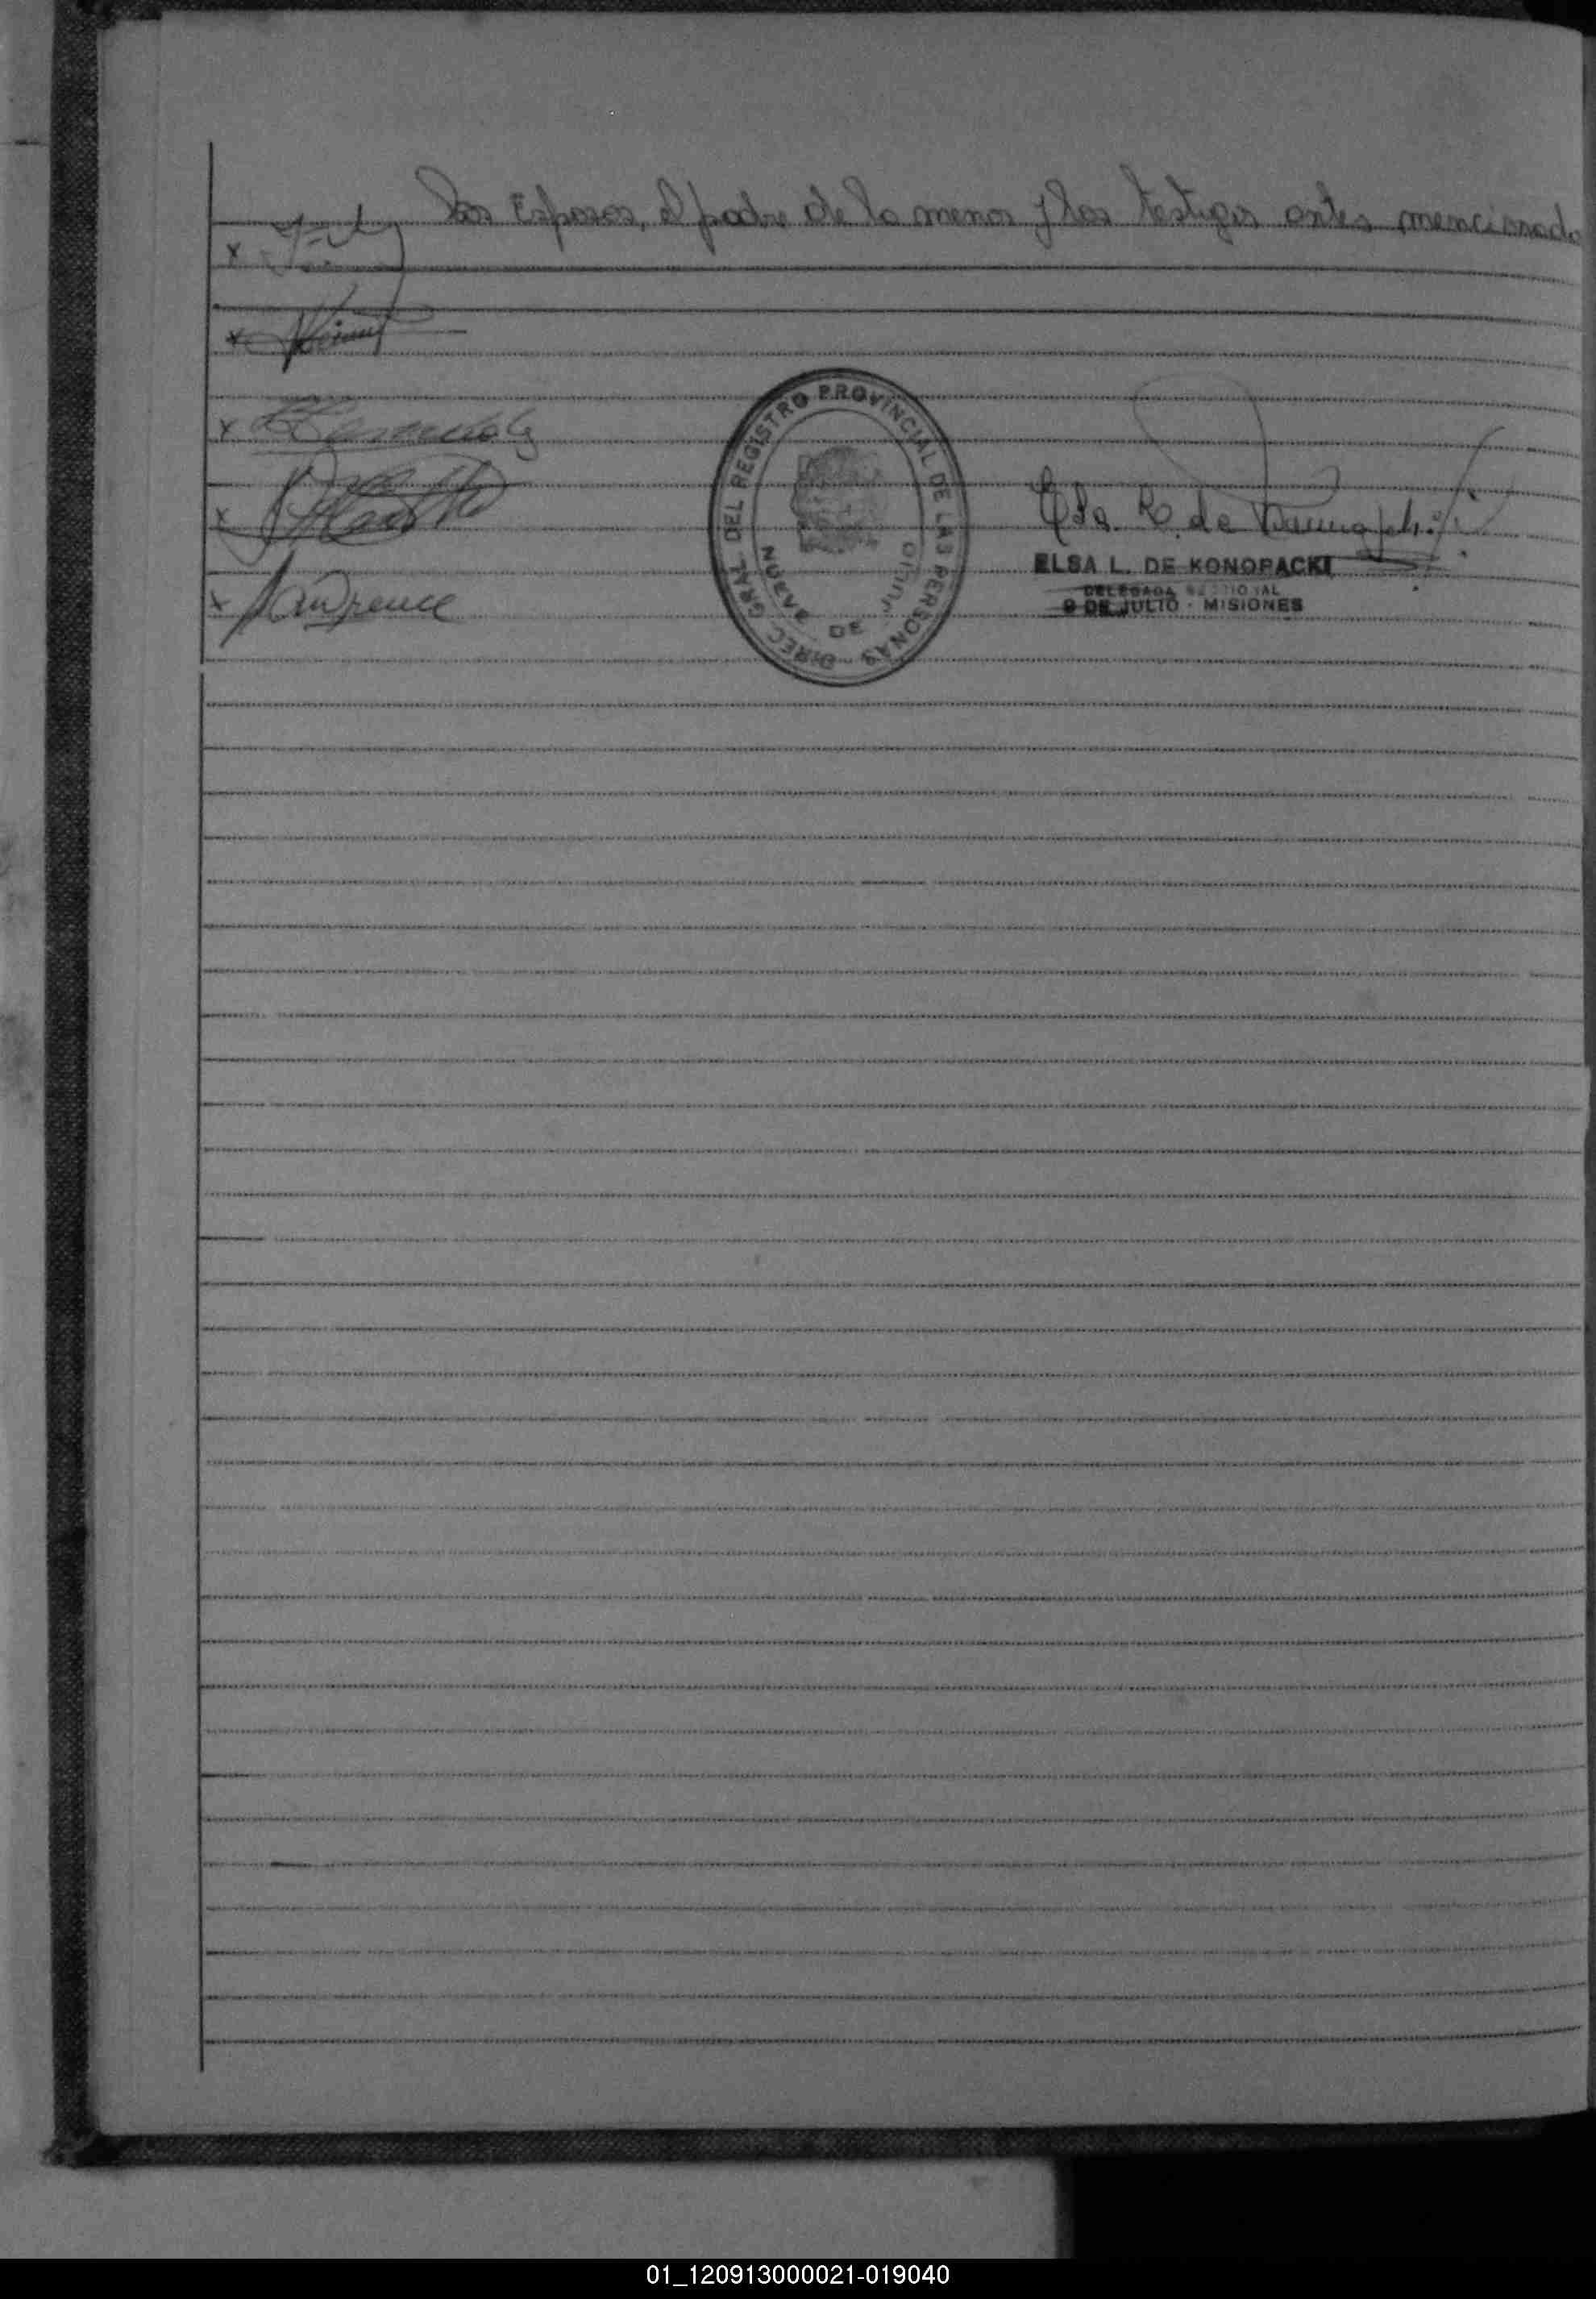 Los Esposos, el padre de la menor y los testigos antes mencionado
DIREC. GRAL. DEL REGISTRO PROVINCIAL DE LAS PERSONAS
NUEVE DE JULIO
Elsa L. de Konopacki
ELSA L. DE KONOPACKI
DELEGADA SECCIONAL
9 DE JULIO - MISIONES
x
x
x
x
x Lawrence
01_120913000021-019040